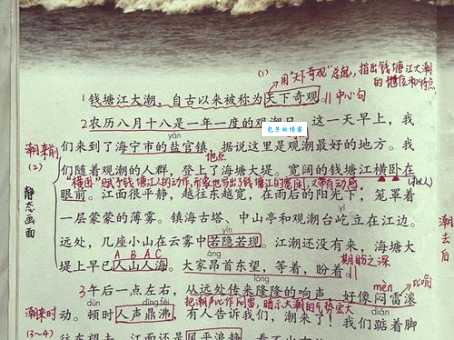 (1)
用"天下奇观"总起,指出钱塘江大潮
的地位和特点
1钱塘江大潮,自古以来被称为天下奇观。
中心句
2农历八月十八是一年一度的观潮日。这一天早上,我
yán
们来到了海宁市的盐官镇,据说这里是观潮最好的地方。我
地点
们随着观潮的人群,登上了海塘大堤。宽阔的钱塘江横卧在
眼前。江面很平静,越往东越宽,在雨后的阳光下,笼罩着
一层蒙蒙的薄雾。镇海古塔、中山亭和观潮台屹立在江边。
远处,几座小山在云雾中若隐若现。江潮还没有来,海塘大
A B A C
堤上早已人山人海。大家昂首东望,等着,盼着。
期盼之深
3午后一点左右,从远处传来隆隆的响声,好像闷雷滚
mèn
比喻
把潮声比作闷雷,
dùn
dǐng fèi
动。顿时人声鼎沸,有人告诉我们,潮来了!我们踮着脚
diǎn
往东望去,江面还是风平浪静,看不
潮来前
(2)
静态画面
潮来时
(3~4)
潮
去
后